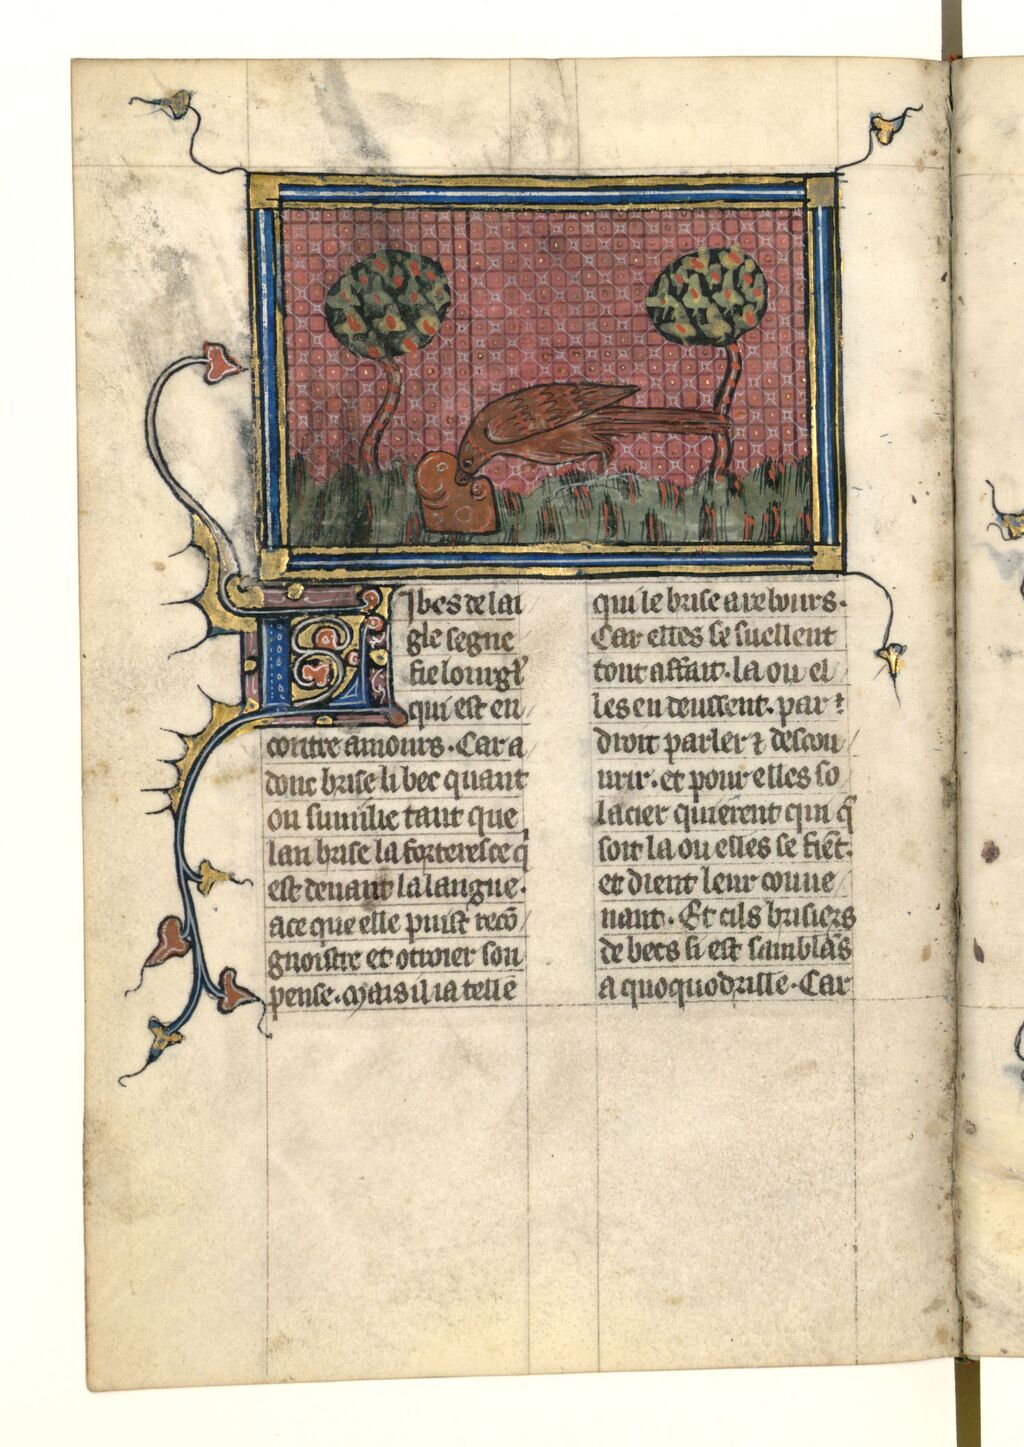 L Ibes de lai
gle segne
fie lourgꝭ
qui est en
contre amours. Car a
donc brise li bec quant
on sumilie tant que
lan brise la forteresce q̄
est deuant la langue.
a ce que elle puist recō
gnoistre et otroier son
pense. Mais il ia telle
qui le brise a rebours.
Car elles se suellent
tout affait. la ou el
les en deussent. par
droit parler ⁊ descou
urir. et pour elles so
lacier quierent qui q̄
soit la ou elles se fiēt.
et dient leur couue
nant. Et cils brisiers
de becs si est samblās
a quoquodrille. Car